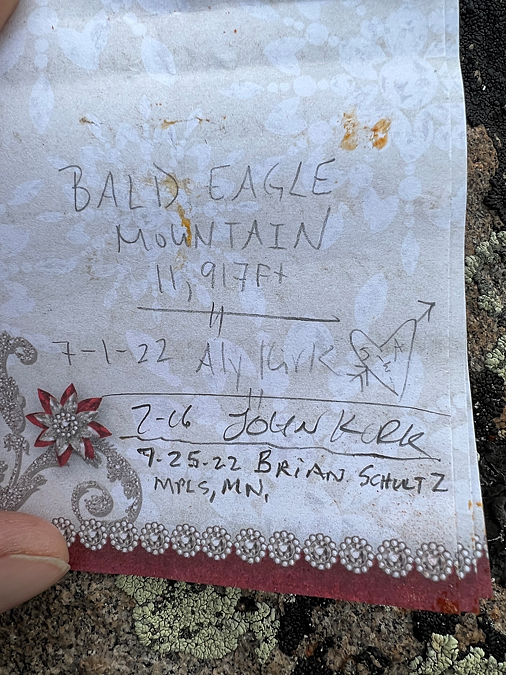 BALD EAGLE
MOUNTAIN
11,917Ft
7-1-22 Aly Kirk
7-16 JOHN KIRK
9-25-22 BRIAN SCHULTZ
MPLS, MN,